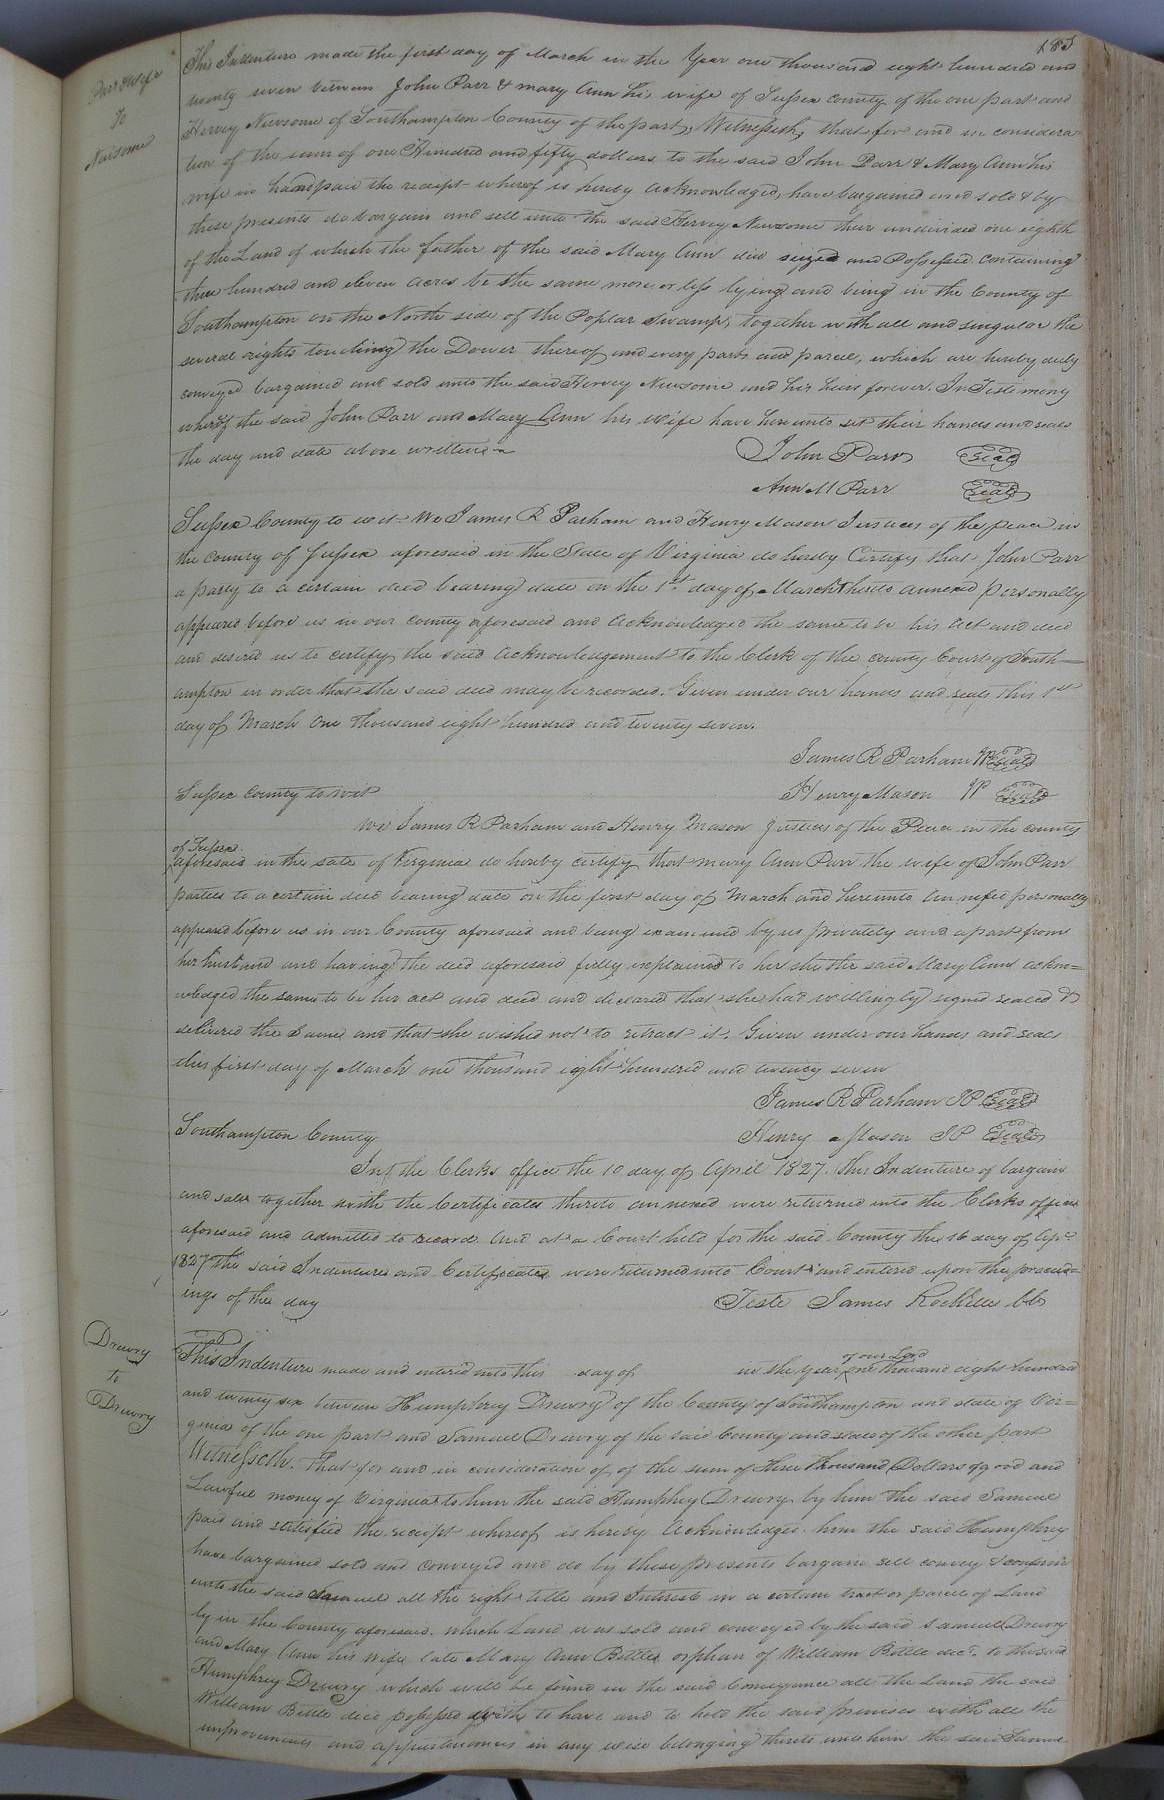 185
Parr & Wife
To
Newsome
This Indenture made the first day of March in the Year one thousand eight hundred and
twenty seven between John Parr & mary Ann his wife of Sussex county of the one part and
Hervey Newsome of Southampton County of the part, Witnesseth, that for and in considera
tion of the sum of one Hundred and fifty dollars to the said John Parr & Mary Ann his
wife in hand paid the receipt whereof is hereby acknowledged, have bargained and sold & by
these presents do bargain and sell unto the said Hervey Newsome their undivided one eighth
of the Land of which the father of the said Mary Ann died seized and Possessed containing
three hundred and eleven acres be the same more or less lying and being in the County of
Southampton on the North side of the Poplar Swamp, together with all and singular the
several rights touching the Dower thereof and every part and parcel, which are hereby duly
conveyed bargained and sold unto the said Hervey Newsome and his heirs forever. In Testimony
whereof the said John Parr and Mary Ann his wife have hereunto set their hands and seals
the day and date above written
John Parr Seal
Ann M Parr Seal
Sussex County to wit We James R Parham and Henry Mason Justices of the peace in
the county of Sussex aforesaid in the State of Virginia do hereby Certify that John Parr
a party to a certain deed bearing date on the 1st day of March & hereto annexed personally
appeared before us in our county aforesaid and acknowledged the same to be his act and deed
and desired us to certify the said acknowledgement to the Clerk of the county Court of South=
ampton in order that the said deed may be recorded. Given under our hands and seals this 1st
day of March One thousand eight hundred and twenty seven.
James R Parham JP Seal
Sussex County to wit
Henry Mason JP Seal
We James R Parham and Henry Mason Justices of the Peace in the county
of Sussex
aforesaid in the state of Virginia do hereby certify that mary Ann Parr the wife of John Parr
parties to a certain deed bearing date on the first day of March and hereunto annexed personally
appeared before us in our County aforesaid and being examined by us privately and apart from
her husband and having the deed aforesaid fully explained to her she the said Mary Ann ackno=
wledged the same to be her act and deed and declared that she had willingly signed sealed &
delivered the same and that she wished not to retract it. Given under our hands and seals
this first day of March one thousand eight hundred and twenty seven
James R Parham JP Seal
Southampton County
Henry Mason JP Seal
In the Clerks office the 10 day of April 1827. this Indenture of bargain
and sale together with the Certificates thereto annexed were returned into the Clerks office
aforesaid and admitted to record And at a Court held for the said County the 16 day of Apl
1827 the said Indenture and Certificates were returned into Court and entered upon the proceed=
ings of the day
Teste James Rochelle Clk
Drewry
to
Drewry
This Indenture made and entered into this day of in the year
of our Lord
one thousand eight hundred
and twenty six between Humphrey Drewry of the County of Southampton and state of Vir=
ginia of the one part and Samuel Drewry of the said County and state of the other part
Witnesseth. That for and in consideration of of the sum of three thousand Dollars good and
Lawful money of Virginia to him the said Humphrey Drewry by him the said Samuel
paid and satisfied the receipt whereof is hereby acknowledged him the said Humphrey
have bargained sold and conveyed and do by these presents bargain sell convey & confirm
unto the said Samuel all the right title and Interest in a certain tract or parcel of Land
ly in the County aforesaid. which Land was sold and conveyed by the said Samuel Drewry
and Mary Ann his wife late Mary Ann Bittle orphan of William Bittle decd. to the said
Humphrey Drewry which will be found in the said Conveyance all the Land the said
William Bittle died possessed with to have and to hold the said premises with all the
improvements and appurtenances in any wise belonging thereto unto him the said Samuel